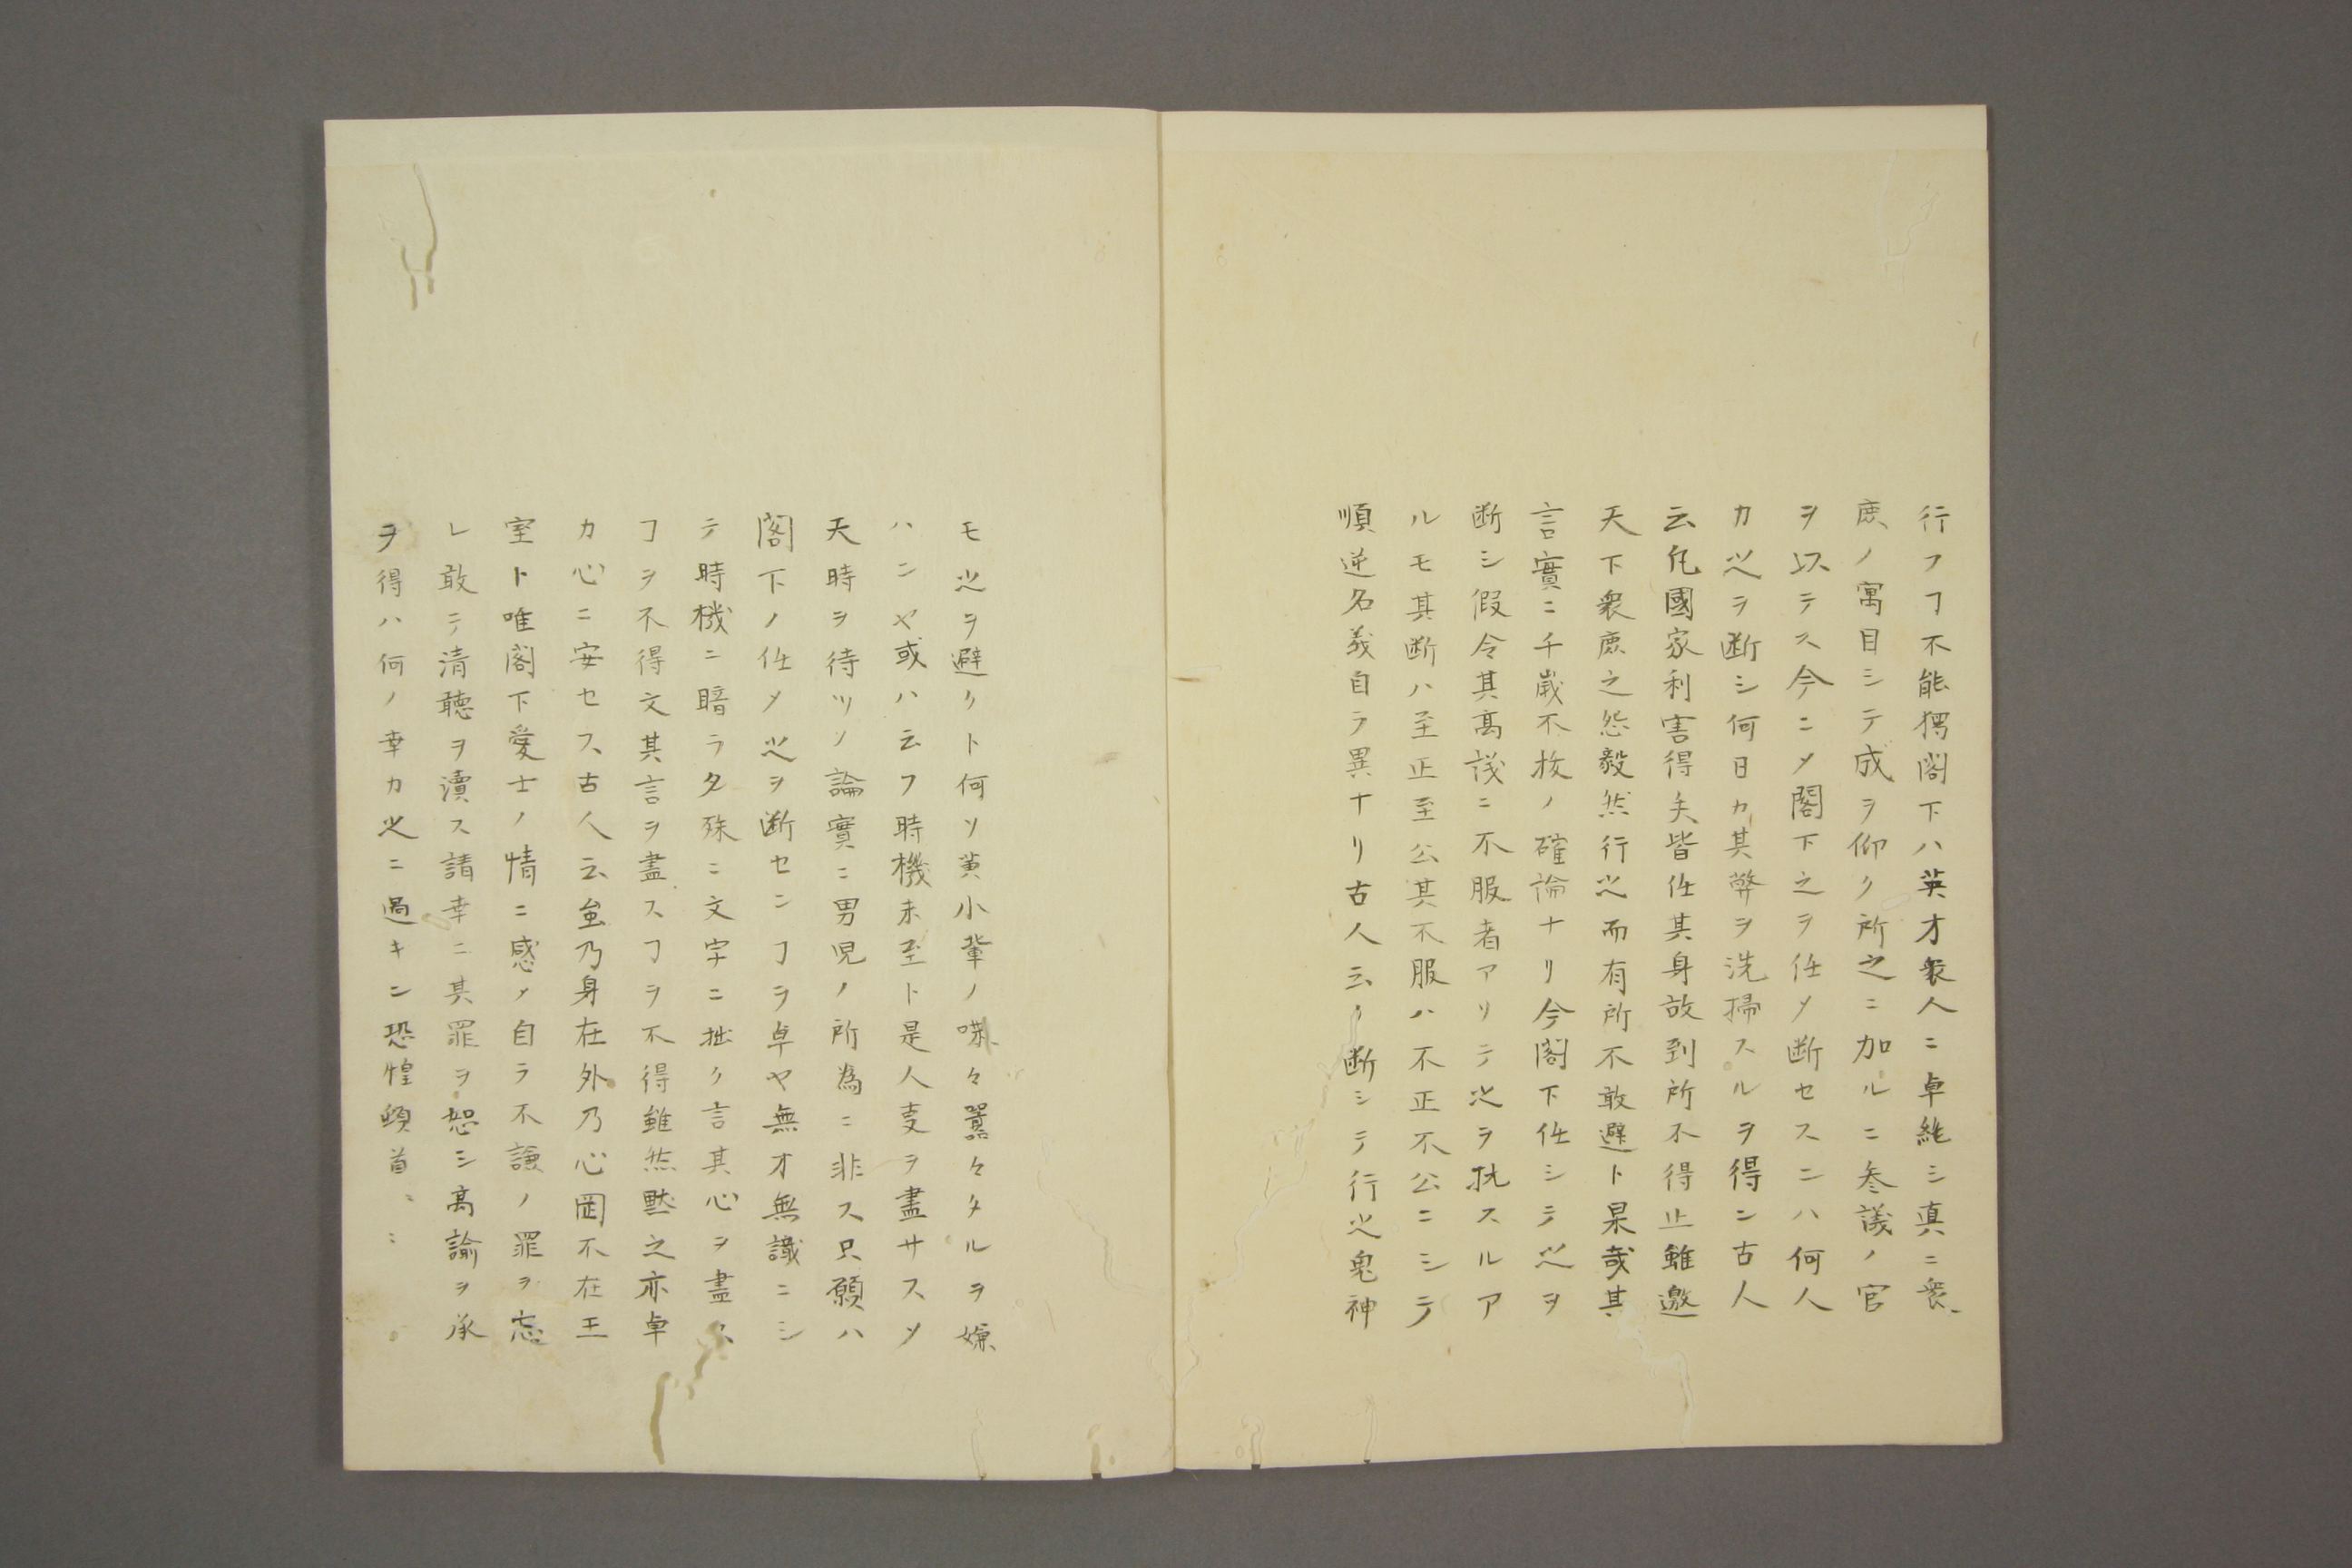 行フヿ不能獨閣下ハ英才衆人ニ卓絶シ真ニ衆
庶ノ寓目シテ成ヲ仰ク所之ニ加ルニ参議ノ官
ヲ以テス今ニ〆閣下之ヲ任〆断セスンハ何人
カ之ヲ断シ何日カ其弊ヲ洗掃スルヲ得ン古人
云凡國家利害得失皆任其身故到所不得止雖邀
天下衆庶之怨毅然行之而有所不敢避ト杲哉其
言實ニ千歳不抜ノ確論ナリ今閣下任シテ之ヲ
断シ假令其高議ニ不服者アリテ之ヲ抗スルア
ルモ其断ハ至正至公其不服ハ不正不公ニシテ
順逆名義自ラ異ナリ古人云ク断シテ行之鬼神
モ之ヲ避クト何ソ黄小輩ノ喋々囂々タルヲ嫌
ハンヤ或ハ云フ時機未至ト是人事ヲ盡サスメ
天時ヲ待ツノ論實ニ男児ノ所為ニ非ス只願ハ
閣下ノ任〆之ヲ断センヿヲ卓ヤ無才無識ニシ
テ時機ニ暗ラク殊ニ文字ニ拙ク言其心ヲ盡ス
ヿヲ不得文其言ヲ盡スヿヲ不得雖然黙之亦卓
カ心ニ安セス古人云虽乃身在外乃心罔不在王
室ト唯閣下愛士ノ情ニ感〆自ラ不謙ノ罪ヲ忘
レ敢テ清聴ヲ瀆ス請幸ニ其罪ヲ恕シ高諭ヲ承
ヲ得ハ何ノ幸カ之ニ過キン恐惶頓首〻〻